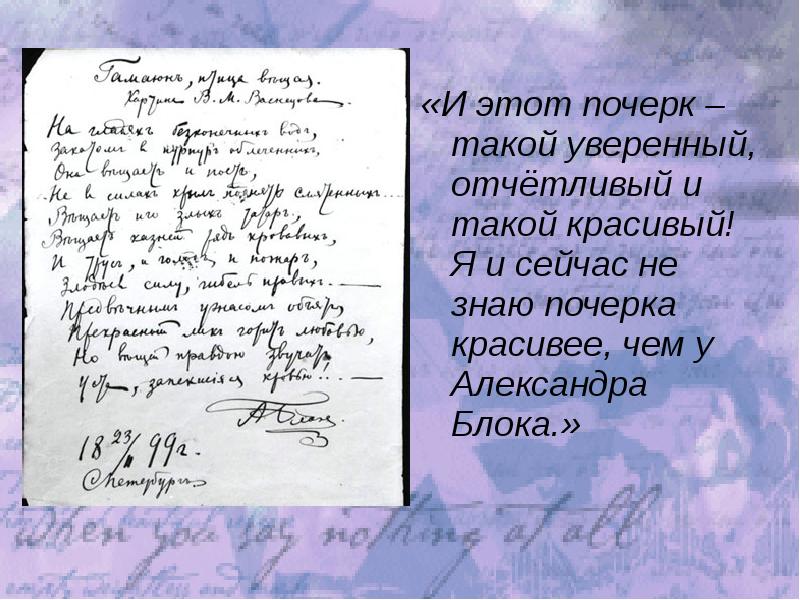 Гамаюнъ, птица вѣщая.
Картина В. М. Васнецова.
На гладяхъ безконечныхъ водъ,
Закатомъ в пурпуръ облеченныхъ,
Она вѣщаетъ и поетъ,
Не в силахъ крылъ поднять смятенныхъ...
Вѣщаетъ иго злыхъ татаръ,
Вѣщаетъ казней рядъ кровавыхъ,
И трусъ, и голодъ, и пожаръ,
Злодѣевъ силу, гибель правыхъ.
Предвѣчнымъ ужасомъ объятъ,
Прекрасный ликъ горитъ любовью,
Но вѣщей правдою звучатъ
Уста, запекшіяся кровью!!.
А Блокъ
18 23/II 99 г.
С.Петербургъ
«И этот почерк –
такой уверенный,
отчётливый и
такой красивый!
Я и сейчас не
знаю почерка
красивее, чем у
Александра
Блока.»
when you say nothing at all